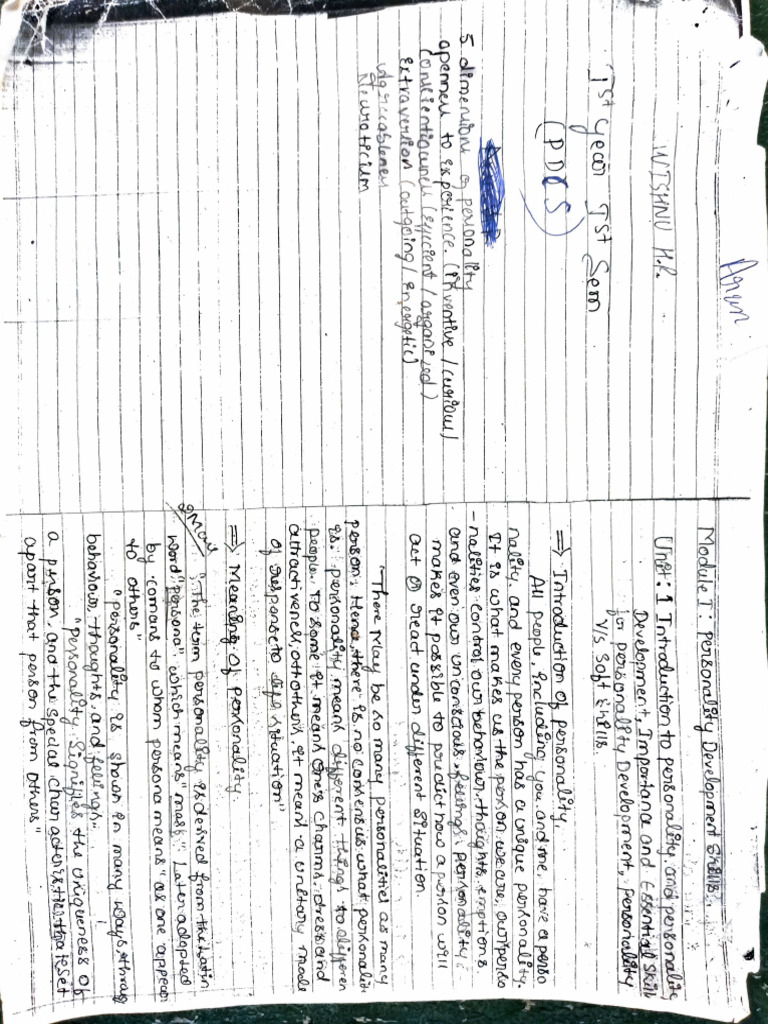 Arun
VISHNU H.R.
Ist year Ist Sem
(PDCS)
5 dimensions of personality
openness to experience. (inventive / curious)
Conscientiousness (efficient / organized)
extraversion (outgoing / energetic)
Agreeableness
Neuroticism
Module I : Personality Development Skills.
Unit : 1 Introduction to personality and personality
Development, Importance and Essential Skill
for personality Development, personality
V/s Soft Skills.
⇒ Introduction of personality.
All people, including you and me, have a perso
nality, and every person has a unique personality.
It is what makes us the person we are, our perso
-nalities control our behaviour, thoughts, emptions
and even our unconscious feelings. personality
makes it possible to predict how a person will
act or react under different situation.
There may be so many personalities as many
person. Hence there is no consensus what personalit
is. personality means different things to differen
people. To some it means ones charms, dress and
attractiveness, others, it means a unitary mode
of response to life situation"
⇒ Meaning of personality.
2 Mark
"The term personality is derived from the Latin
word "persona" which means "mask" Later adapted
by romans to whom persona means "as one appear
to others"
"personality is shown in many ways, throug
behaviour, thoughts, and feelings."
"Personality signifies the uniqueness of
a person, and the special characteristics that set
apart that person from others"